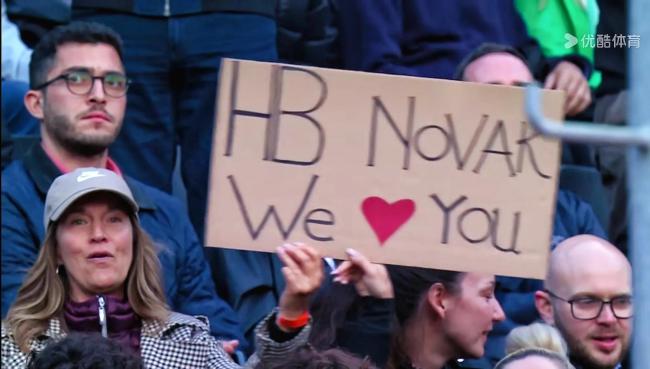 优酷体育
HB NOVAK
We ♥ You